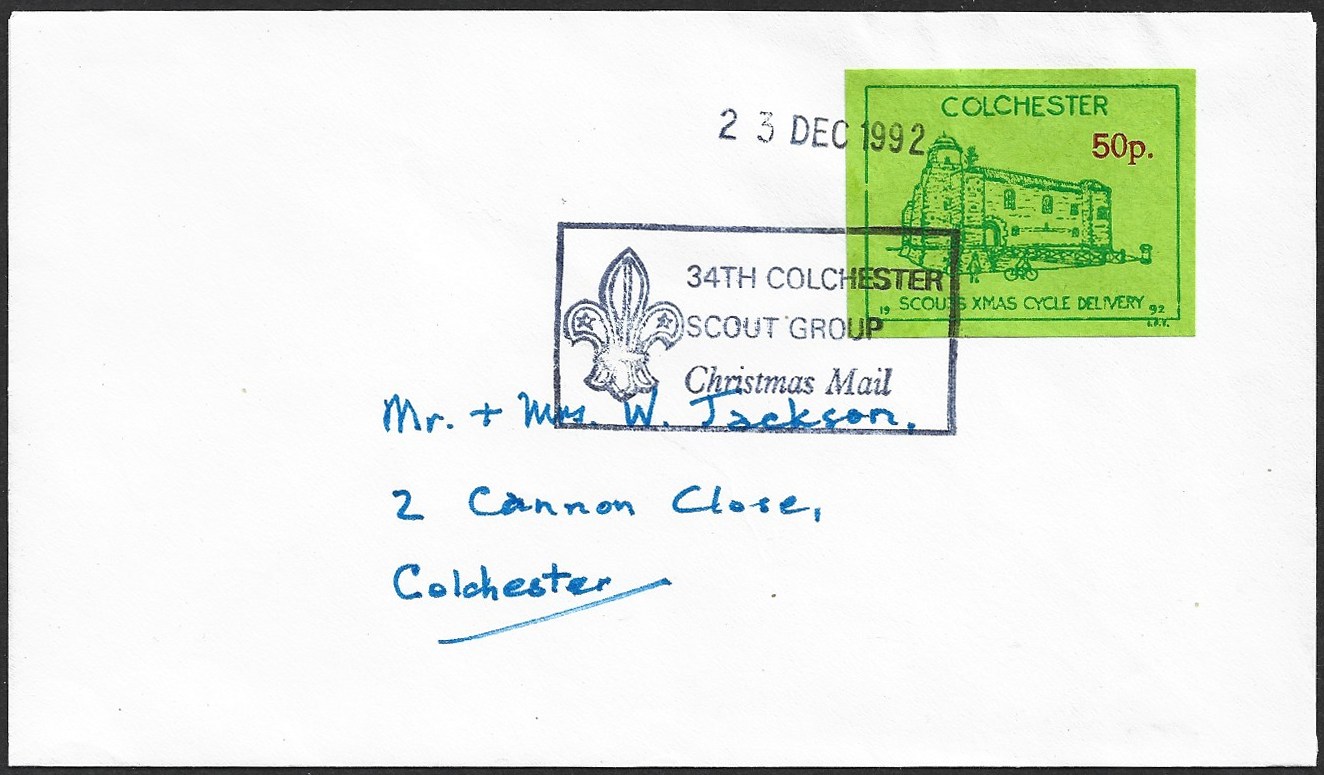 23 DEC 1992
COLCHESTER
50p.
34TH COLCHESTER
SCOUT GROUP
Christmas Mail
19 SCOUTS XMAS CYCLE DELIVERY 92
Mr. + Mrs. W. Jackson.
2 Cannon Close,
Colchester